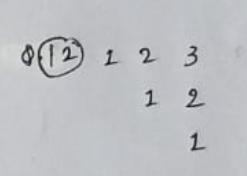 (12) 1 2 3
1 2
1